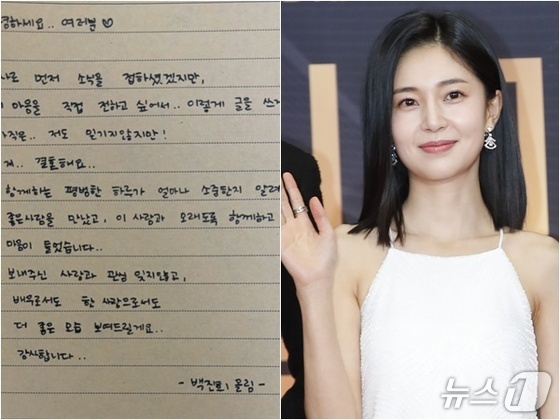 하세요.. 여러분♡
먼저 소식을 접하셨겠지만,
마음을 직접 전하고 싶어서.. 이렇게 글을 쓰
저도 믿기지않지만!
저.. 결혼해요..
함께하는 평범한 하루가 얼마나 소중한지 알려
좋은사람을 만났고, 이 사람과 오래도록 함께하고
마음이 들었습니다..
보내주신 사랑과 관심 잊지않고,
배우로서도 한 사람으로서도
더 좋은 모습 보여드릴게요..
감사합니다..
- 백진희 올림 -
뉴스1